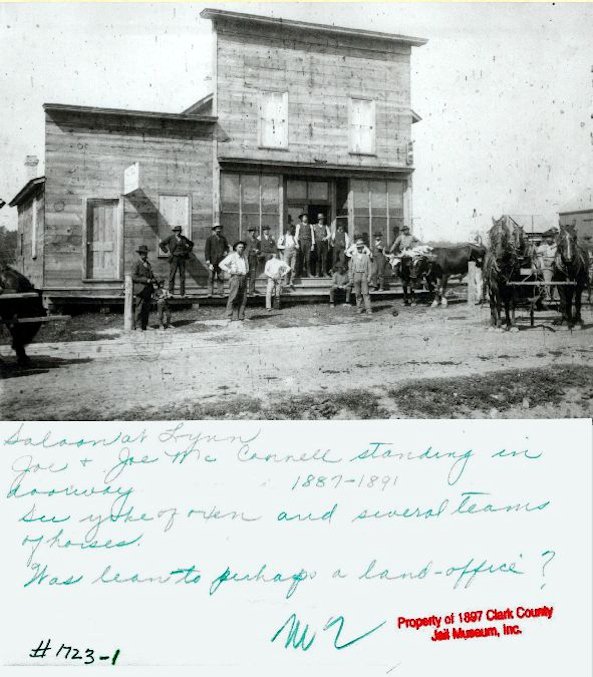 Saloon at Lynn
Joe + Joe Mc Connell standing in
doorway 1887-1891
See yoke of oxen and several teams
of horses.
Was lean to perhaps a land-office?
Property of 1897 Clark County
Jail Museum, Inc.
#723-1